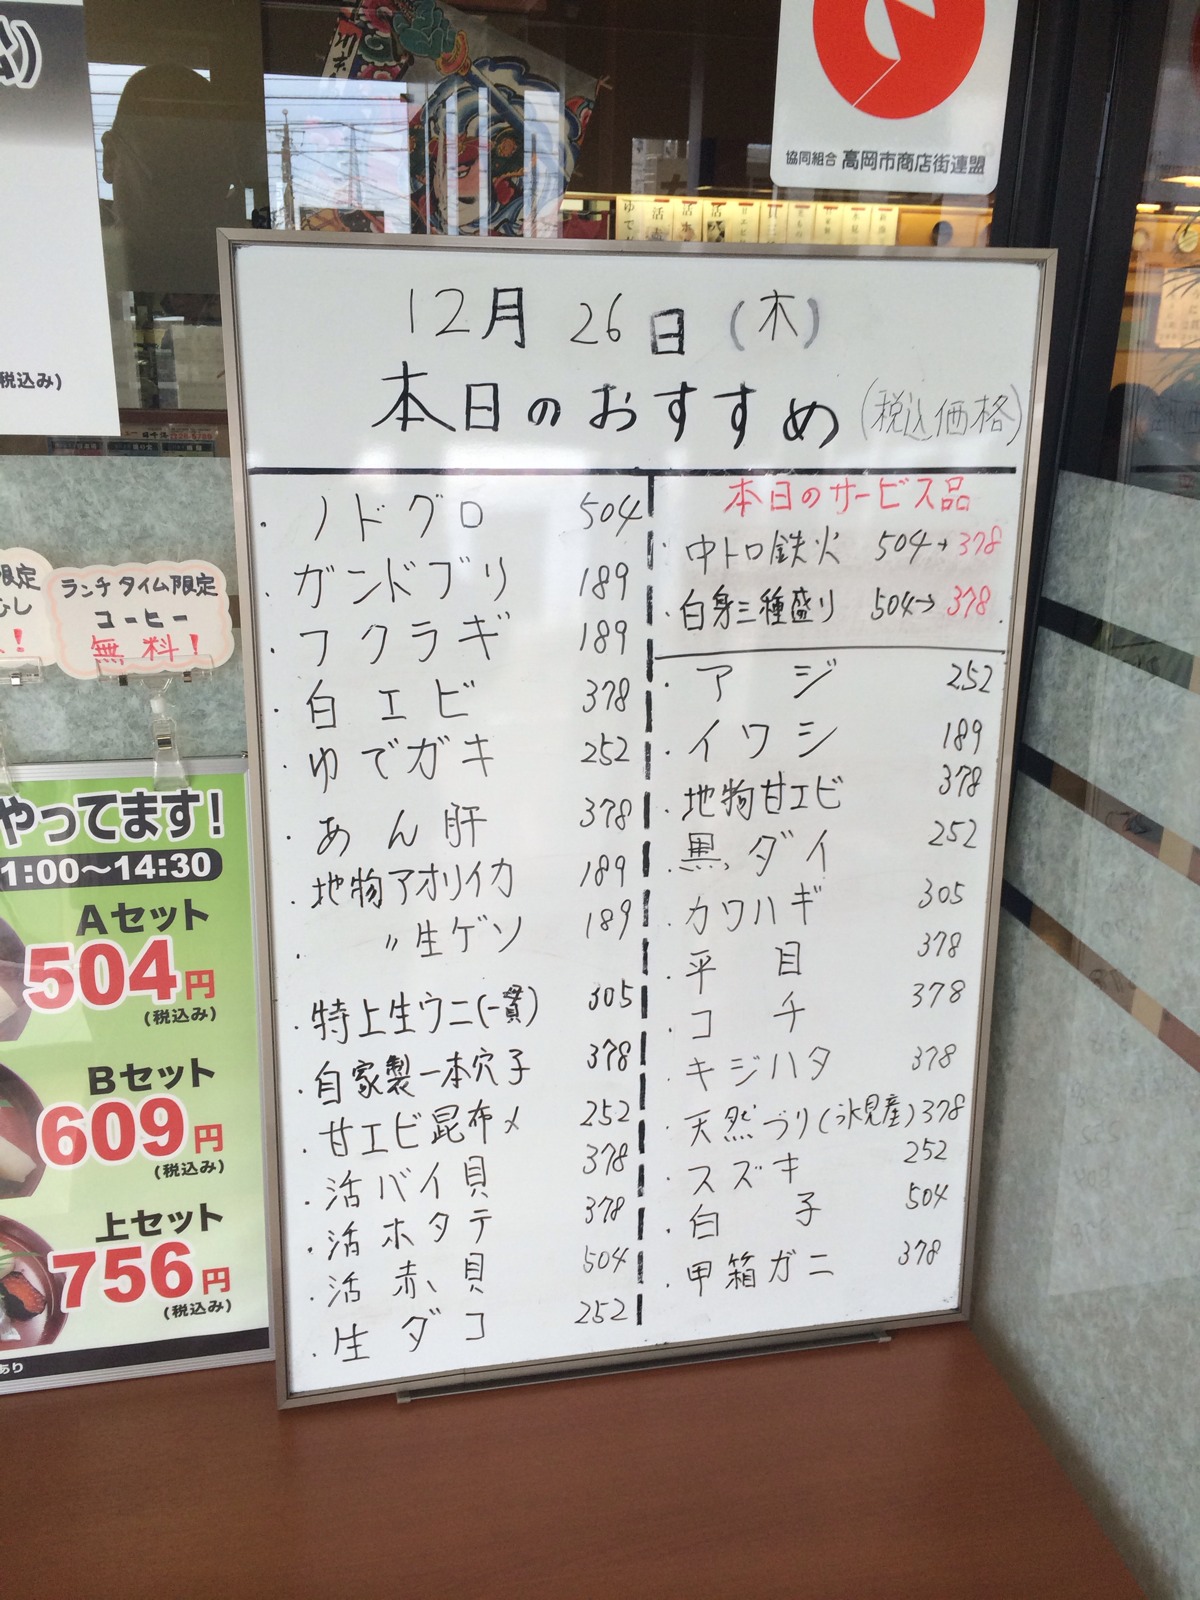 協同組合 高岡市商店街連盟
税込み)
12月 26日 (木)
本日のおすすめ (税込価格)
・ノドグロ 504
・ガンドブリ 189
・フクラギ 189
・白エビ 378
・ゆでガキ 252
・あん肝 378
・地物アオリイカ 189
・〃生ゲソ 189
・特上生ウニ(一貫) 305
・自家製一本穴子 378
・甘エビ昆布〆 252
・活バイ貝 378
・活ホタテ 378
・活赤貝 504
・生ダコ 252
本日のサービス品
・中トロ鉄火 504→378
・白身三種盛り 504→378
・アジ 252
・イワシ 189
・地物甘エビ 378
・黒ダイ 252
・カワハギ 305
・平目 378
・コチ 378
・キジハタ 378
・天然ブリ(氷見産) 378
・スズキ 252
・白子 504
・甲箱ガニ 378
限定
むし
!
ランチタイム限定
コーヒー
無料!
やってます!
1:00〜14:30
Aセット
504円
(税込み)
Bセット
609円
(税込み)
上セット
756円
(税込み)
あり